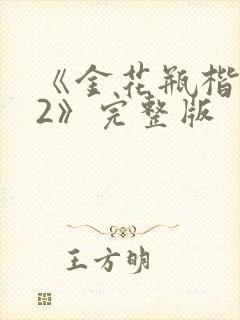 《金花瓶楷
2》完整版
王方明